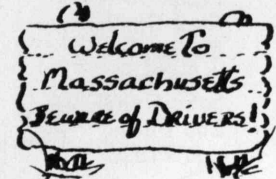 Welcome To
Massachusetts
Beware of Drivers!